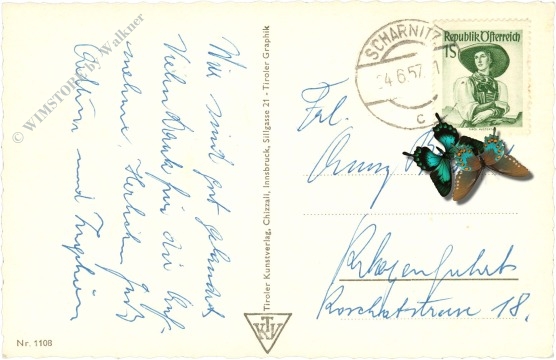 Wir sind gut gelandet
Vielen Dank für die Auf-
nahme. Herzlichen Gruß
und
© WIMSTORE by Walkner
Nr. 1108
Tiroler Kunstverlag, Chizzali, Innsbruck, Sillgasse 21 - Tiroler Graphik
TKV
SCHARNITZ
24.6.57
c
Republik Österreich
1S
Frl.
Klagenfurt
Koschatstrasse 18.